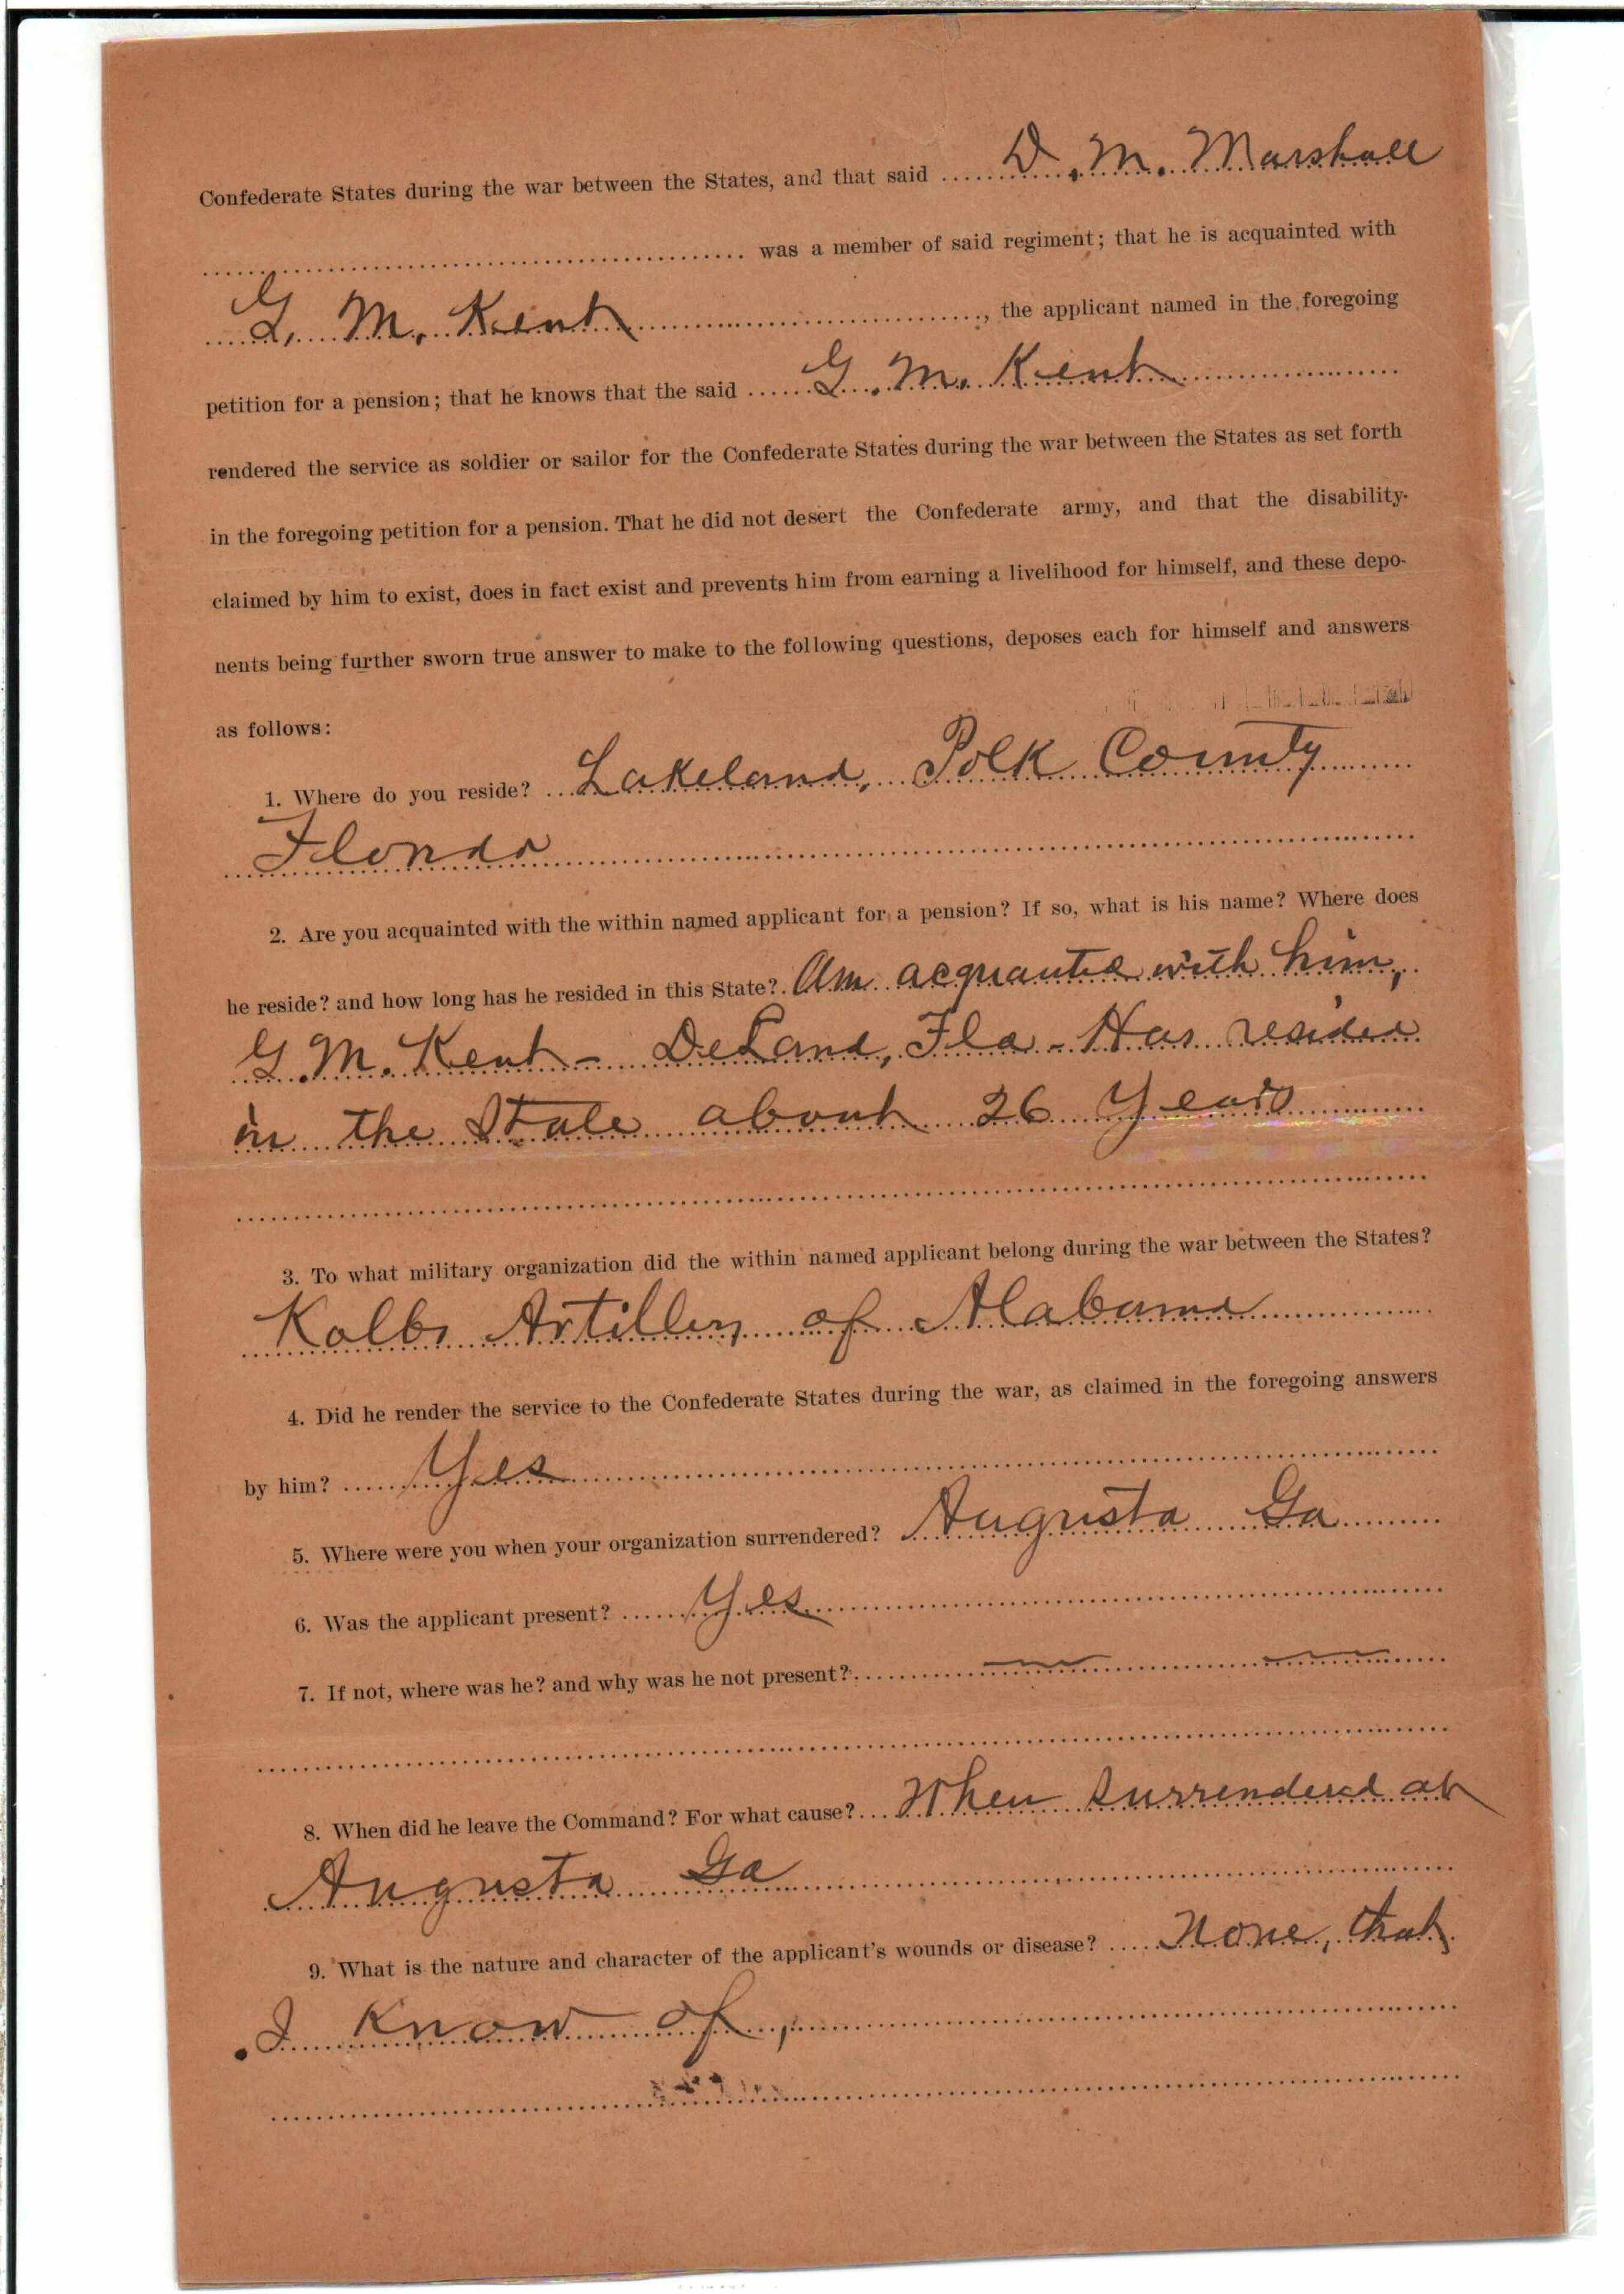 Confederate States during the war between the States, and that said D. M. Marshall
was a member of said regiment; that he is acquainted with
G. M. Kent, the applicant named in the foregoing
petition for a pension; that he knows that the said G. M. Kent
rendered the service as soldier or sailor for the Confederate States during the war between the States as set forth
in the foregoing petition for a pension. That he did not desert the Confederate army, and that the disability
claimed by him to exist, does in fact exist and prevents him from earning a livelihood for himself, and these depo-
nents being further sworn true answer to make to the following questions, deposes each for himself and answers
as follows:
1. Where do you reside? Lakeland, Polk County
Florida
2. Are you acquainted with the within named applicant for a pension? If so, what is his name? Where does
he reside? and how long has he resided in this State? Am acquanted with him,
G. M. Kent - DeLand, Fla - Has resided
in the State about 26 Years
3. To what military organization did the within named applicant belong during the war between the States?
Kolbs Artillery of Alabama
4. Did he render the service to the Confederate States during the war, as claimed in the foregoing answers
by him? Yes
5. Where were you when your organization surrendered? Augusta Ga
6. Was the applicant present? Yes
7. If not, where was he? and why was he not present?
8. When did he leave the Command? For what cause? When surrendered at
Augusta Ga
9. What is the nature and character of the applicant's wounds or disease? None, that
I know of,